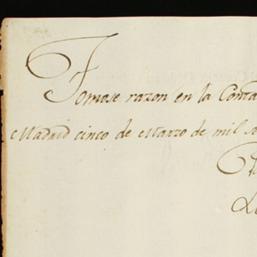 Tomase razon en la Conta
Madrid cinco de Marzo de mil s